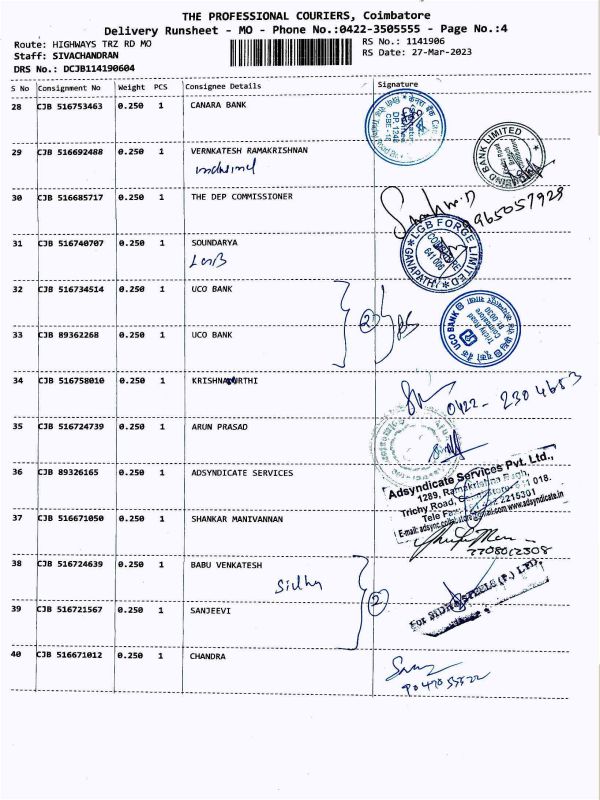 THE PROFESSIONAL COURIERS, Coimbatore
Delivery Runsheet - MO - Phone No.:0422-3505555 - Page No.:4
Route: HIGHWAYS TRZ RD MO
RS No.: 1141906
Staff: SIVACHANDRAN
RS Date: 27-Mar-2023
DRS No.: DCJB114190604
S No Consignment No Weight PCS Consignee Details Signature
28 CJB 516753463 0.250 1 CANARA BANK
29 CJB 516692488 0.250 1 VERNKATESH RAMAKRISHNAN
INDUSIND BANK LIMITED
30 CJB 516685717 0.250 1 THE DEP COMMISSIONER
9965057929
31 CJB 516740707 0.250 1 SOUNDARYA
LGB
LGB FORGE LIMITED
COIMBATORE
641 006
GANAPATHY
32 CJB 516734514 0.250 1 UCO BANK
2
UCO BANK
Trichy Road
Coimbatore
33 CJB 89362268 0.250 1 UCO BANK
34 CJB 516758010 0.250 1 KRISHNAMURTHI
0422-2304653
35 CJB 516724739 0.250 1 ARUN PRASAD
36 CJB 89326165 0.250 1 ADSYNDICATE SERVICES
Adsyndicate Services Pvt. Ltd.,
1289, Ramakrishna Bagh,
Trichy Road, Coimbatore- 641 018.
2215301
www.adsyndicate.in
37 CJB 516671050 0.250 1 SHANKAR MANIVANNAN
7708012308
38 CJB 516724639 0.250 1 BABU VENKATESH
Sidhu
2
For SIDHU STEELS (P.) LTD.,
39 CJB 516721567 0.250 1 SANJEEVI
40 CJB 516671012 0.250 1 CHANDRA